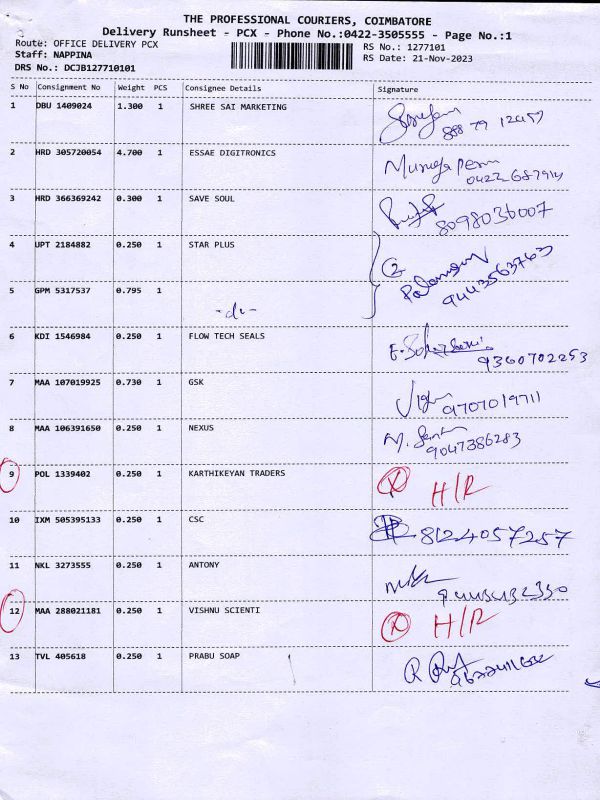 THE PROFESSIONAL COURIERS, COIMBATORE
Delivery Runsheet - PCX - Phone No.:0422-3505555 - Page No.:1
Route: OFFICE DELIVERY PCX
Staff: NAPPINA
DRS No.: DCJB127710101
RS No.: 1277101
RS Date: 21-Nov-2023
S No Consignment No Weight PCS Consignee Details Signature
1 DBU 1409024 1.300 1 SHREE SAI MARKETING
2 HRD 305720054 4.700 1 ESSAE DIGITRONICS
3 HRD 366369242 0.300 1 SAVE SOUL 8098036007
4 UPT 2184882 0.250 1 STAR PLUS 9443563763
5 GPM 5317537 0.795 1
6 KDI 1546984 0.250 1 FLOW TECH SEALS 9360702253
7 MAA 107019925 0.730 1 GSK
8 MAA 106391650 0.250 1 NEXUS 9047386283
9 POL 1339402 0.250 1 KARTHIKEYAN TRADERS H/R
10 IXM 505395133 0.250 1 CSC 8124057257
11 NKL 3273555 0.250 1 ANTONY
12 MAA 288021181 0.250 1 VISHNU SCIENTI H/R
13 TVL 405618 0.250 1 PRABU SOAP